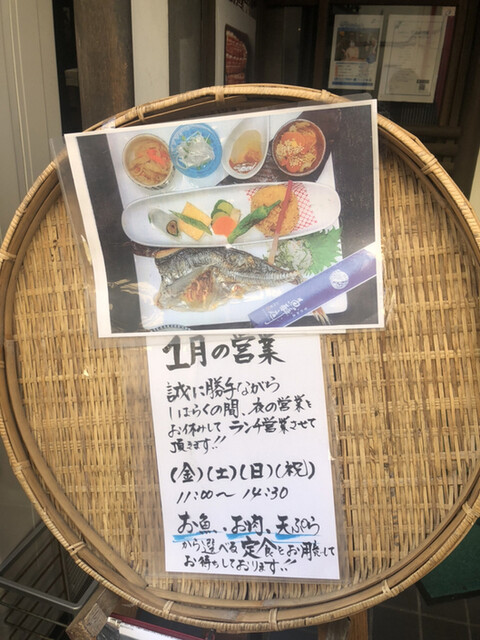 1月の営業
誠に勝手ながら
しばらくの間、夜の営業を
お休みして ランチ営業させて
頂きます!!
(金)(土)(日)(祝)
11:00～14:30
お魚、お肉、天ぷら
から選べる定食をお用意して
お待ちしております!!